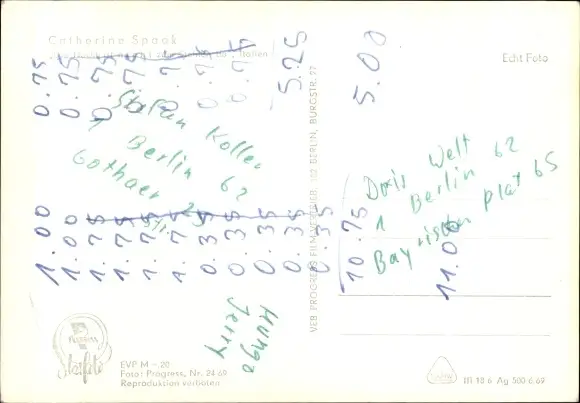 Catherine Spaak
Echt Foto
0.75
0.75
0.75
0.75
0.75
0.75
0.75
5.25
5.00
Stefan Koller
1 Berlin 62
Gothaer
1.00
1.00
1.75
1.75
1.75
1.75
0.35
0.35
0.35
0.35
0.35
10.75
11.00
Doris Welt
1 Berlin 62
Bayrischen plat 65
Hunge
Jerry
VEB PROGRESS FILM-VERTRIEB, 102 BERLIN, BURGSTR. 27
PROGRESS
Starfoto
EVP M -.20
Foto: Progress, Nr. 24 69
Reproduktion verboten
III 18 6 Ag 500 6 69